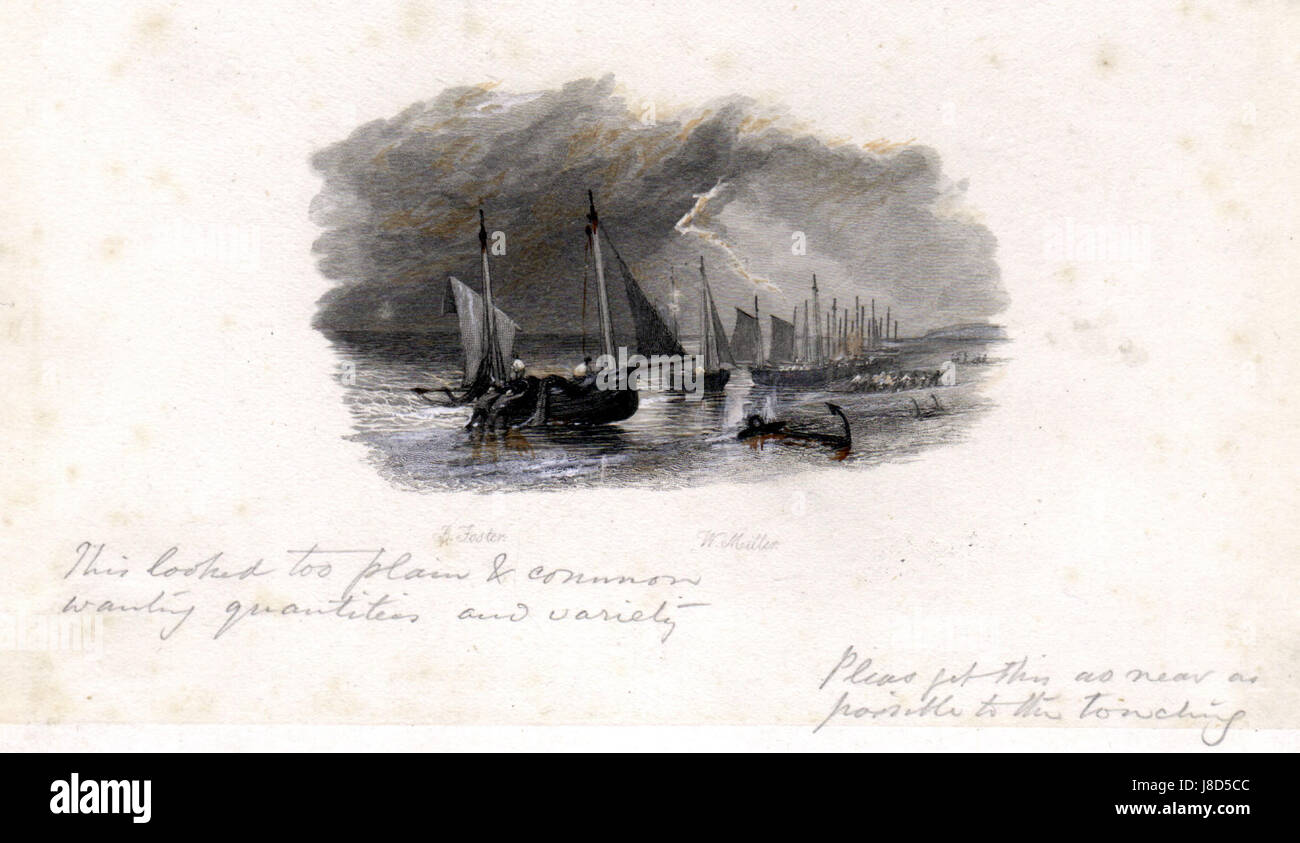 B. Foster. W. Miller.
This looked too plain & common
wanting quantities and variety
Pleas get this as near as
possible to the touching
alamy
Image ID: J8D5CC
www.alamy.com